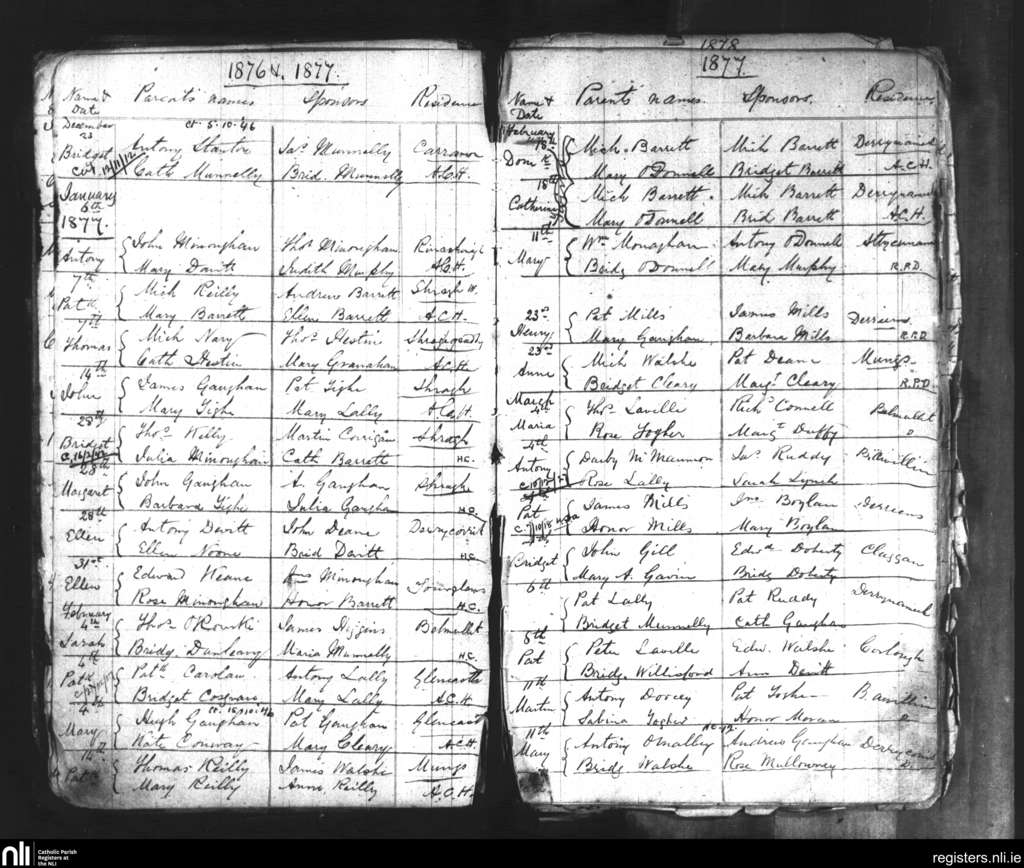 1876 & 1877.
Name & Date Parents names Sponsors Residence
December ct. 5.10.46
23 Antony Stanton Jas. Munnelly Carramor
Bridget Cath Munnelly Brid. Munnelly A.C.H.
January
6th
1877.
Antony John Minonghan Thos Minonghan
Mary Davitt Judith Murphy A.C.H.
7th Mich Reilly Andrew Barrett Shragh W.
Patk Mary Barrett Ellen Barrett A.C.H.
7th Mich Nary Thos Hestin
Thomas Cath Hestin Mary Granahan A.C.H.
14th James Gaughan Pat Tighe Shragh
John Mary Tighe Mary Lally A.C.H.
28th Thos Kelly Martin Corrigan Shragh
Bridget Julia Minonghan Cath Barrett H.C.
28th John Gaughan A. Gaughan Shragh
Margaret Barbara Tighe Julia Gaughan H.C.
28th Antony Devitt John Deane
Ellen Ellen Noone Brid Davitt H.C.
31st Edward Keane Minonghan
Ellen Rose Minonghan Honor Barrett H.C.
February
4th Thos O'Rourke James Higgins Belmullet
Sarah Bridg Dunleavy Maria Munnelly H.C.
4th Patk Carolan Antony Lally Glencastle
Patk Bridget Cosgrave Mary Lally A.C.H.
4th Hugh Gaughan Pat Gaughan Glencast
Mary Kate Conway Mary Cleary A.C.H.
14th Thomas Reilly James Walshe Mungs
Patk Mary Reilly Anne Reilly A.C.H.
1878
1877.
Name & Date Parents names. Sponsors. Residence
February
18th Mich. Barrett Mich Barrett
Domk Mary O'Donnell Bridget Barrett A.C.H.
18th Mich Barrett. Mich Barrett
Catherine Mary O'Donnell Brid Barrett A.C.H.
11th Wm Monaghan Antony O'Donnell
Mary Bridg O'Donnell Mary Murphy R.P.D.
23rd Pat Mills James Mills Derreens
Henry Mary Gaughan Barbara Mills R.P.D
23rd Mich Walshe Pat Deane Mungs.
Anne Bridget Cleary Margt Cleary R.P.D
March
4th Thos Lavelle Richd Connell
Maria Rose Togher Margt Duffy D
4th Darby McMannon Jas. Ruddy
Antony Rose Lally Sarah Lynch
James Mills Jno Boylan Derreens
Pat Honor Mills Mary Boylan
Bridget John Gill Edwd Doherty Claggan
Mary A. Gavin Bridg Doherty
6th Pat Lally Pat Ruddy
Bridget Munnelly Cath Gaughan
6th Peter Lavelle Edw. Walshe
Pat Bridg Willisford Ann Devitt
11th Antony Dorcey Pat Togher
Martin Sabina Togher Honor Moran D
11th Antony O'Malley Andrew Gaughan
Mary Bridg Walshe Rose Mullowney D.
nli Catholic Parish
Registers at
the NLI
registers.nli.ie